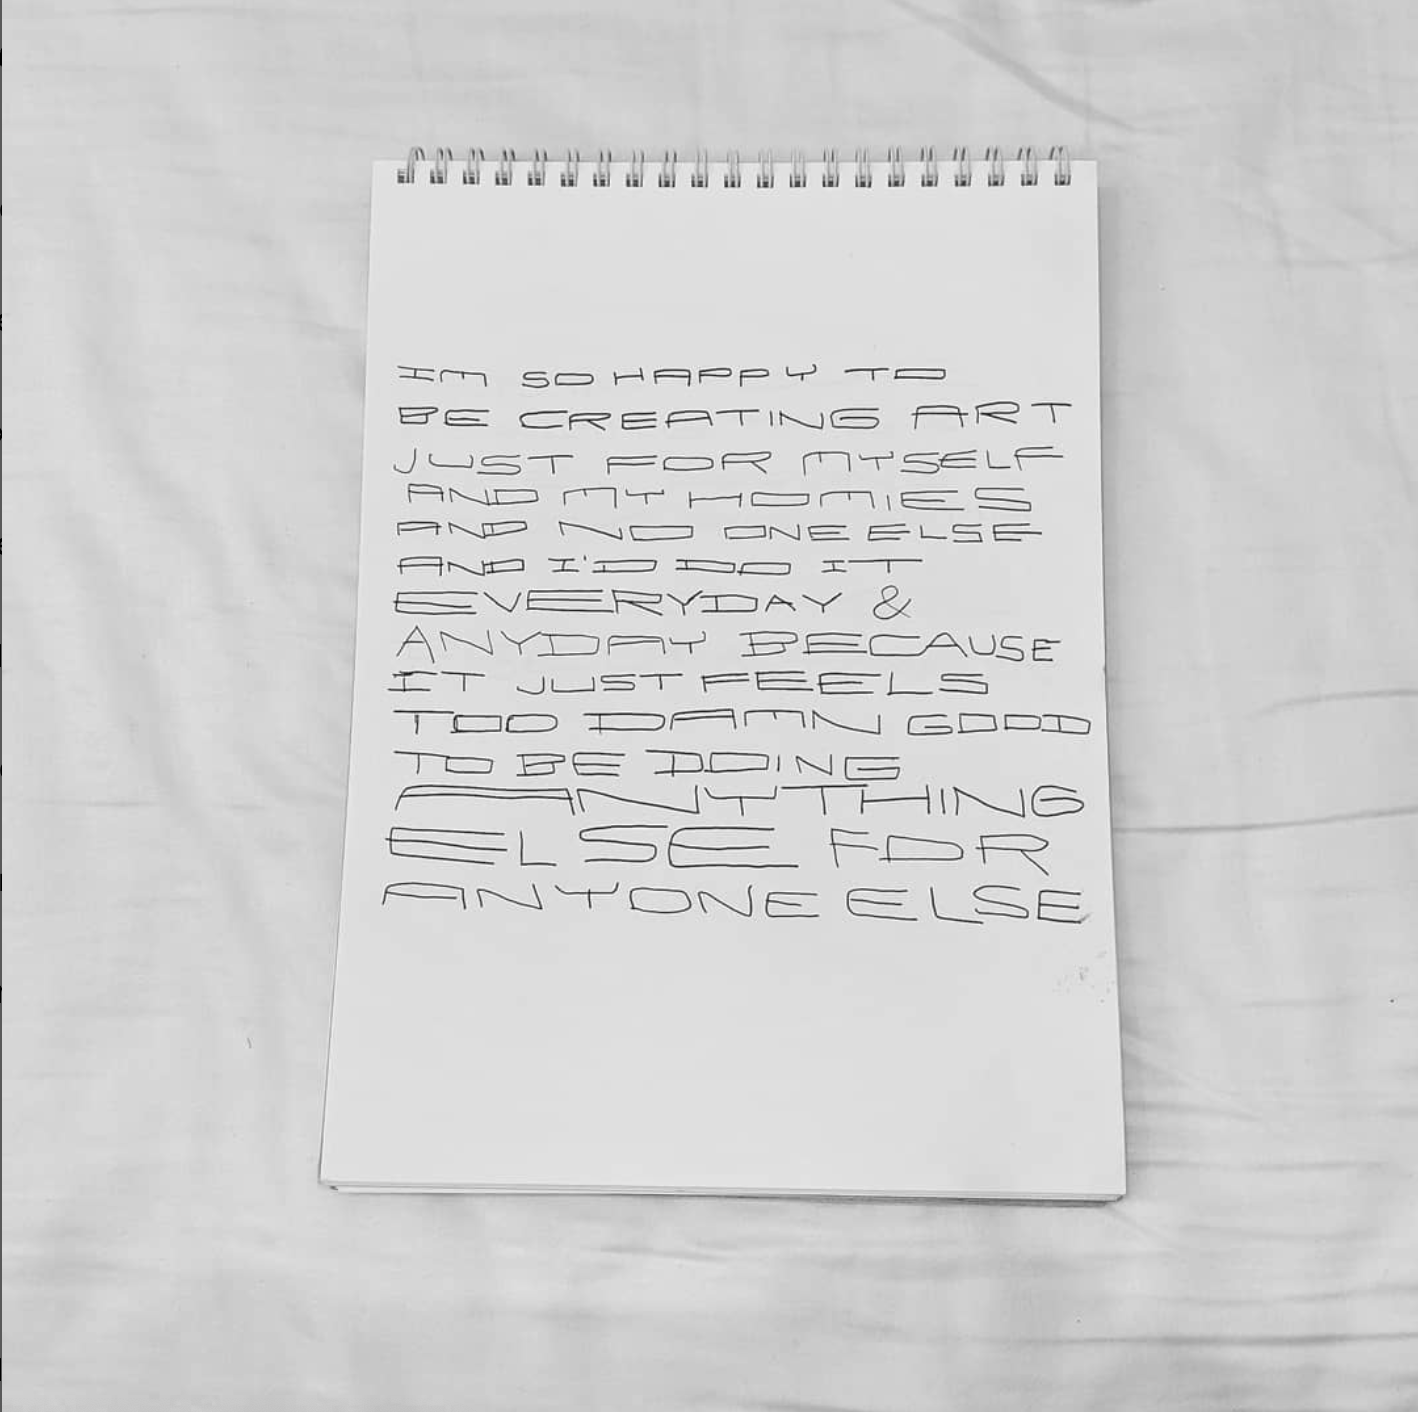 IM SO HAPPY TO
BE CREATING ART
JUST FOR MYSELF
AND MY HOMIES
AND NO ONE ELSE
AND I'D DO IT
EVERYDAY &
ANYDAY BECAUSE
IT JUST FEELS
TOO DAMN GOOD
TO BE DOING
ANYTHING
ELSE FOR
ANYONE ELSE